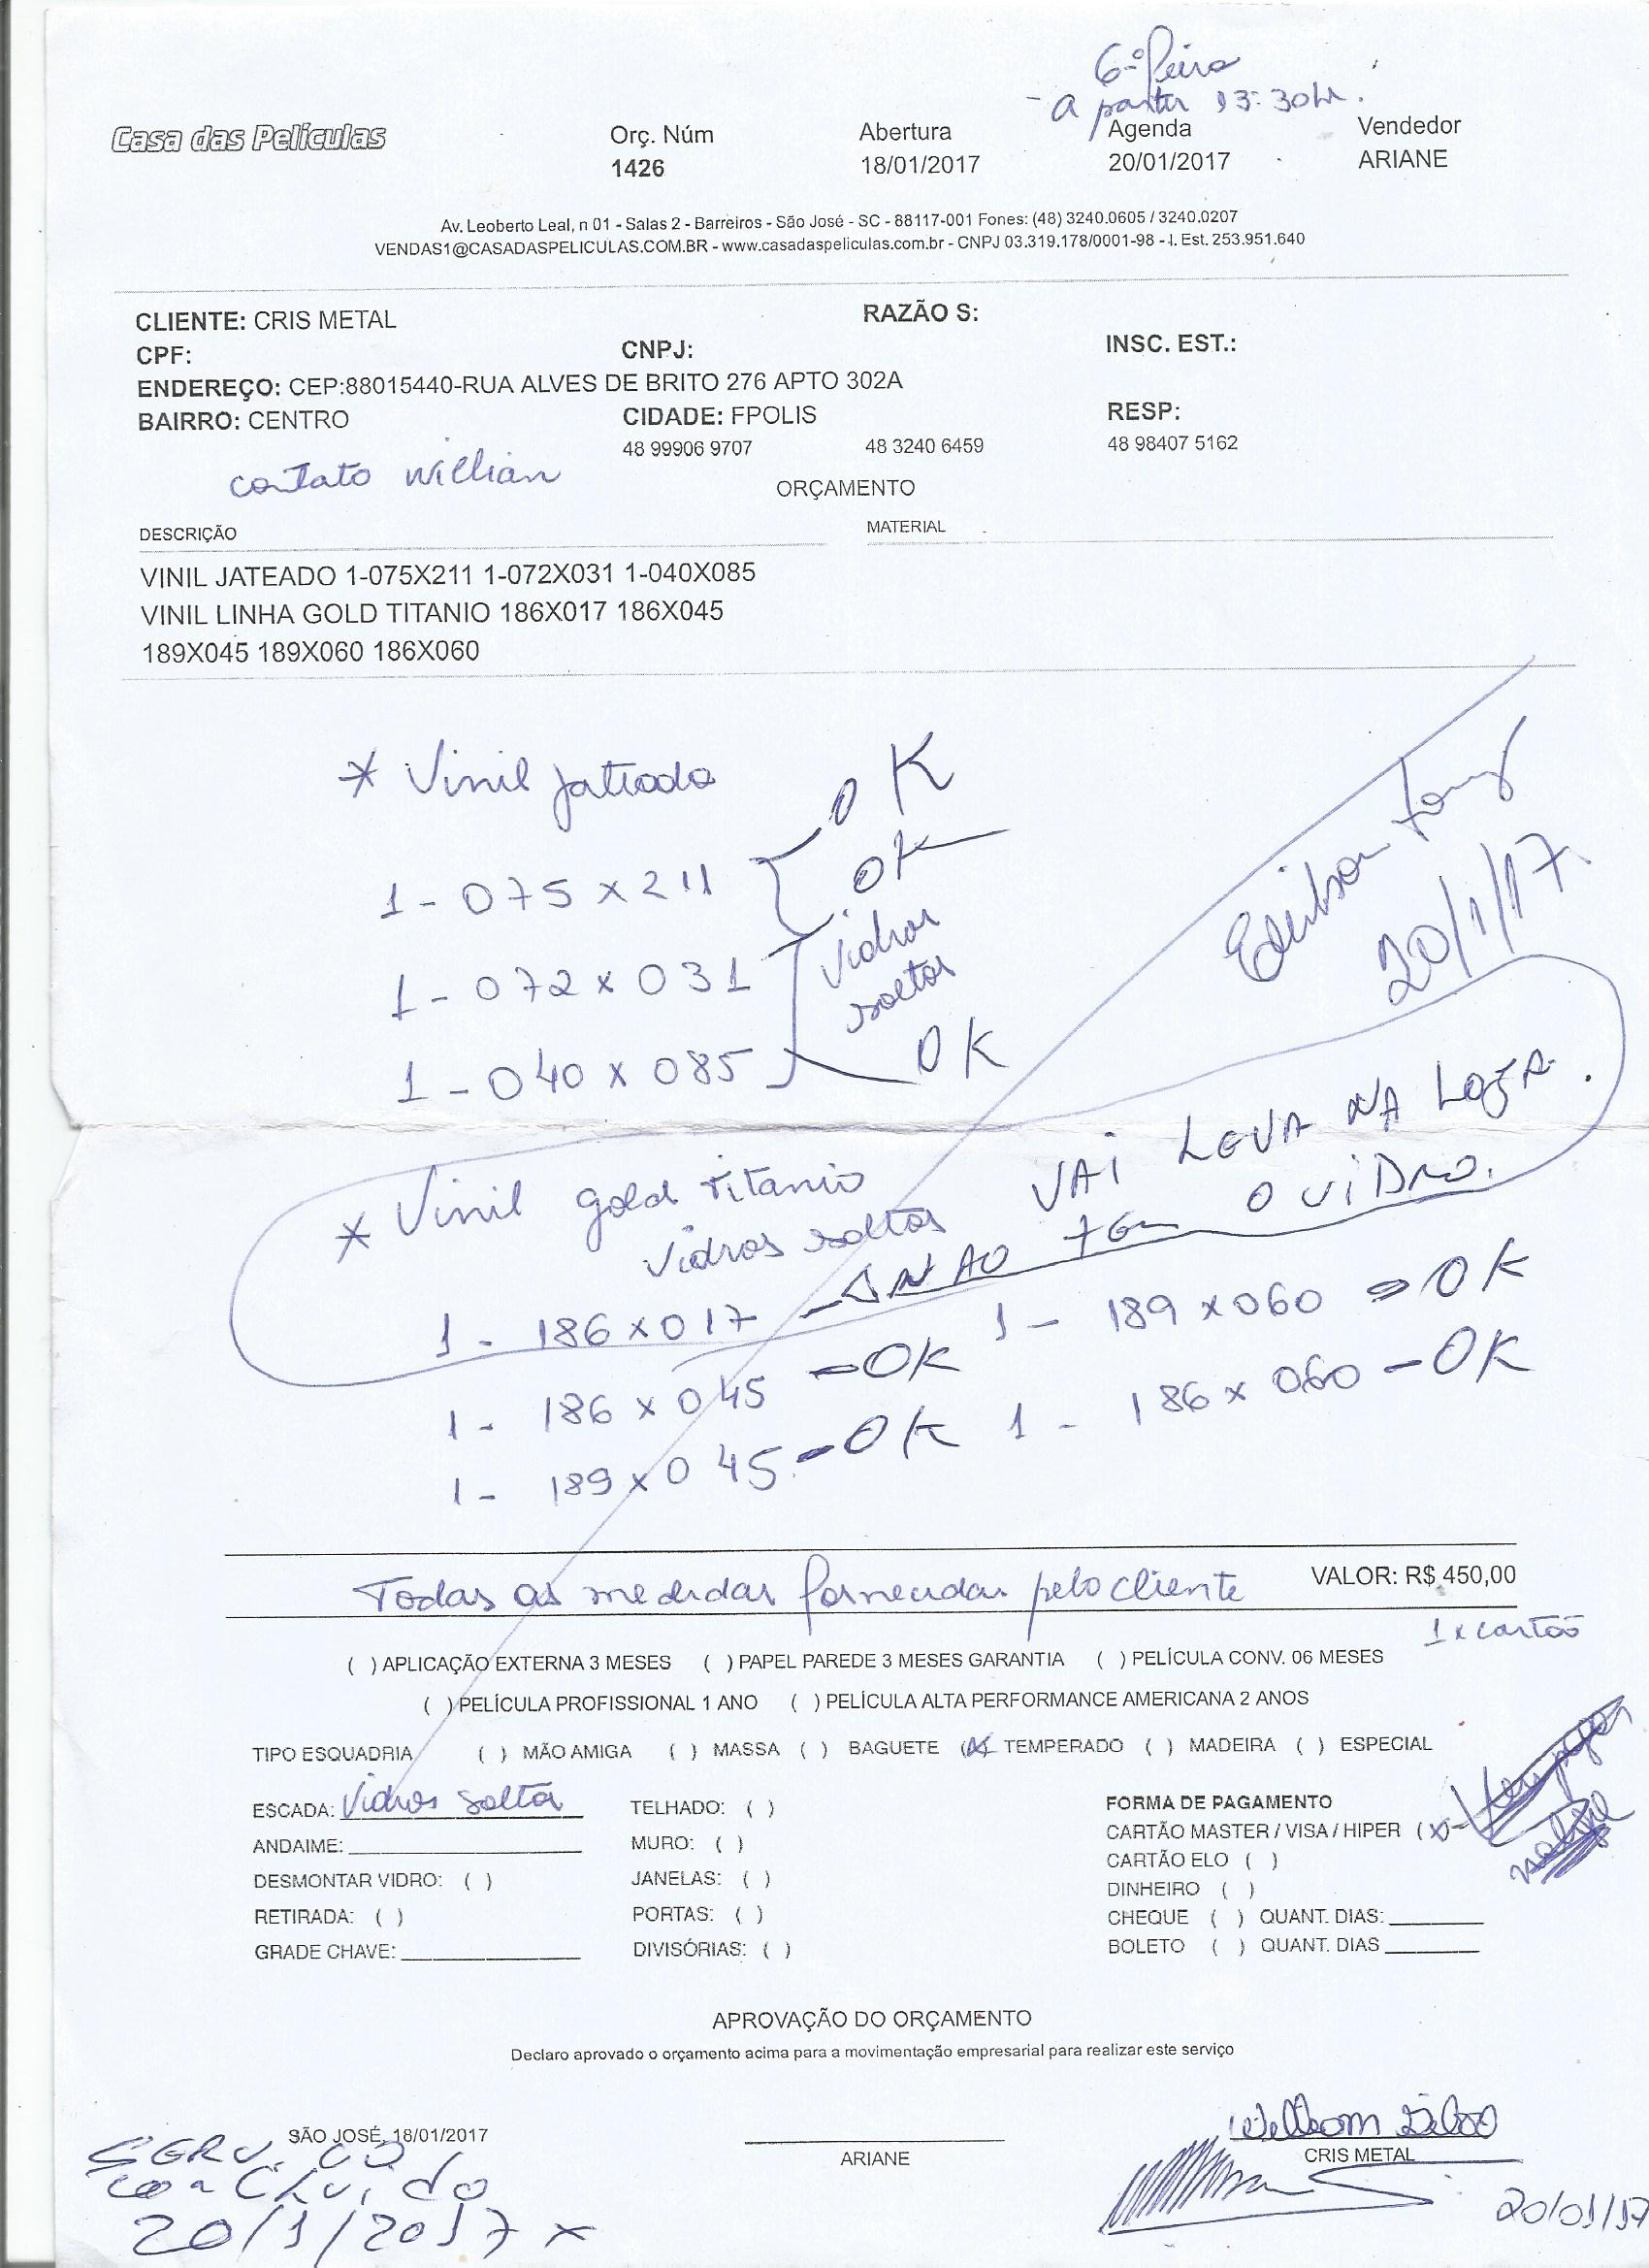 6ª feira
- a partir 13:30hr.
Casa das Películas
Orç. Núm Abertura Agenda Vendedor
1426 18/01/2017 20/01/2017 ARIANE
Av. Leoberto Leal, n 01 - Salas 2 - Barreiros - São José - SC - 88117-001 Fones: (48) 3240.0605 / 3240.0207
VENDAS1@CASADASPELICULAS.COM.BR - www.casadaspeliculas.com.br - CNPJ 03.319.178/0001-98 - I. Est. 253.951.640
CLIENTE: CRIS METAL RAZÃO S:
CPF: CNPJ: INSC. EST.:
ENDEREÇO: CEP:88015440-RUA ALVES DE BRITO 276 APTO 302A
BAIRRO: CENTRO CIDADE: FPOLIS RESP:
48 99906 9707 48 3240 6459 48 98407 5162
contato Willian
ORÇAMENTO
DESCRIÇÃO MATERIAL
VINIL JATEADO 1-075X211 1-072X031 1-040X085
VINIL LINHA GOLD TITANIO 186X017 186X045
189X045 189X060 186X060
* Vinil jateado OK
1 - 075 x 211 OK
1 - 072 x 031 vidros soltos
1 - 040 x 085 OK
20/1/17.
* Vinil gold titanio VAI LEVA NA LOJA.
vidros soltos NAO TEM O VIDRO.
1 - 186 x 017 1 - 189 x 060 - OK
1 - 186 x 045 - OK 1 - 186 x 060 - OK
1 - 189 x 045 - OK
Todas as medidas fornecidas pelo cliente VALOR: R$ 450,00
1 x cartão
( ) APLICAÇÃO EXTERNA 3 MESES ( ) PAPEL PAREDE 3 MESES GARANTIA ( ) PELÍCULA CONV. 06 MESES
( ) PELÍCULA PROFISSIONAL 1 ANO ( ) PELÍCULA ALTA PERFORMANCE AMERICANA 2 ANOS
TIPO ESQUADRIA ( ) MÃO AMIGA ( ) MASSA ( ) BAGUETE (X) TEMPERADO ( ) MADEIRA ( ) ESPECIAL
ESCADA: Vidros soltos TELHADO: ( ) FORMA DE PAGAMENTO
ANDAIME: MURO: ( ) CARTÃO MASTER / VISA / HIPER (X)
DESMONTAR VIDRO: ( ) JANELAS: ( ) CARTÃO ELO ( )
RETIRADA: ( ) PORTAS: ( ) DINHEIRO ( )
GRADE CHAVE: DIVISÓRIAS: ( ) CHEQUE ( ) QUANT. DIAS:
BOLETO ( ) QUANT. DIAS
APROVAÇÃO DO ORÇAMENTO
Declaro aprovado o orçamento acima para a movimentação empresarial para realizar este serviço
SÃO JOSÉ, 18/01/2017
ARIANE CRIS METAL
20/1/2017 x
20/01/17